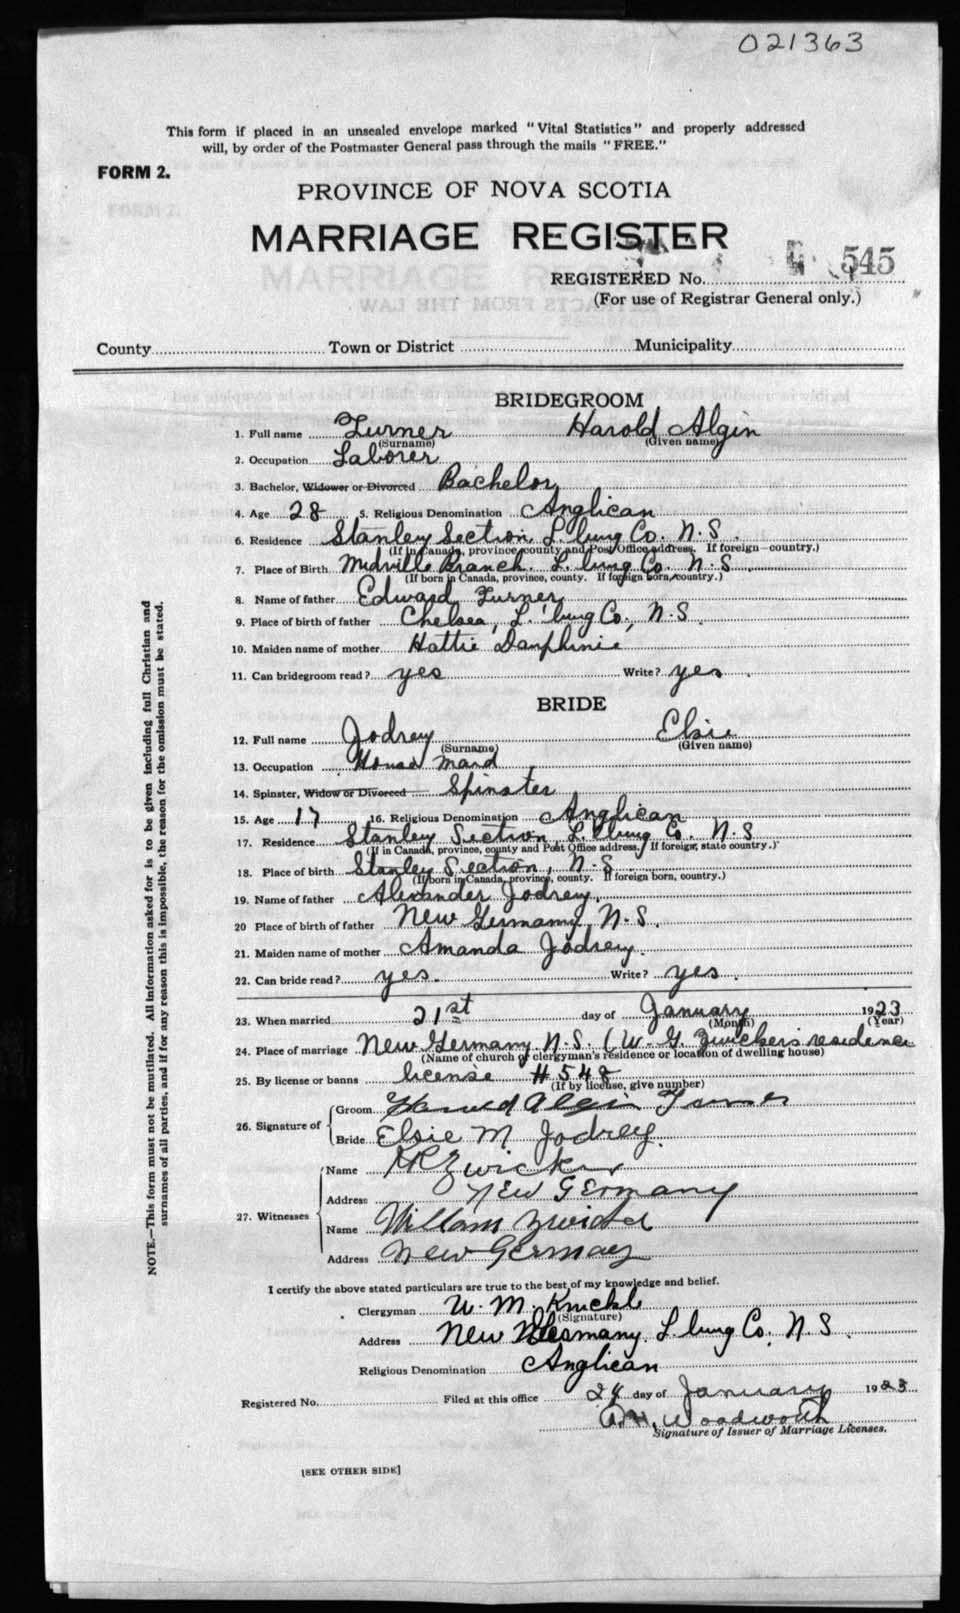 021363
This form if placed in an unsealed envelope marked "Vital Statistics" and properly addressed
will, by order of the Postmaster General pass through the mails "FREE."
FORM 2.
PROVINCE OF NOVA SCOTIA
MARRIAGE REGISTER
545
REGISTERED No.
(For use of Registrar General only.)
County Town or District Municipality
BRIDEGROOM
1. Full name Turner Harold Algin
(Surname) (Given name)
2. Occupation Laborer
3. Bachelor, Widower or Divorced Bachelor
4. Age 28 5. Religious Denomination Anglican
6. Residence Stanley Section, L.'burg Co. N.S.
(If in Canada, province, county and Post Office address. If foreign—country.)
7. Place of Birth Midville Branch. L.'burg Co. N.S.
(If born in Canada, province, county. If foreign born, country.)
8. Name of father Edward Turner
9. Place of birth of father Chelsea, L.'burg Co., N.S.
10. Maiden name of mother Hattie Dauphinie
11. Can bridegroom read? yes Write? yes
BRIDE
12. Full name Jodrey Elsie
(Surname) (Given name)
13. Occupation House Maid
14. Spinster, Widow or Divorced Spinster
15. Age 17 16. Religious Denomination Anglican
17. Residence Stanley Section, L.'burg Co. N.S
(If in Canada, province, county and Post Office address. If foreign, state country.)
18. Place of birth Stanley Section, N.S
(If born in Canada, province, county. If foreign born, country.)
19. Name of father Alexander Jodrey.
20 Place of birth of father New Germany, N.S.
21. Maiden name of mother Amanda Jodrey.
22. Can bride read? yes. Write? yes.
23. When married 21st day of January 1923
(Month) (Year)
24. Place of marriage New Germany N.S. (W. G. Zwicker's residence
(Name of church or clergyman's residence or location of dwelling house)
25. By license or banns license #548
(If by license, give number)
26. Signature of Groom Harold Algin Turner
Bride Elsie M Jodrey.
27. Witnesses Name Zwicker
Address New Germany
Name William
Address New Germany
I certify the above stated particulars are true to the best of my knowledge and belief.
Clergyman W. M. Knickle
(Signature)
Address New Germany, L.'burg Co. N.S.
Religious Denomination Anglican
Registered No. Filed at this office day of January 1923
Woodworth
Signature of Issuer of Marriage Licenses.
[SEE OTHER SIDE]
NOTE.—This form must not be mutilated. All information asked for is to be given including full Christian and
surnames of all parties, and if for any reason this is impossible, the reason for the omission must be stated.